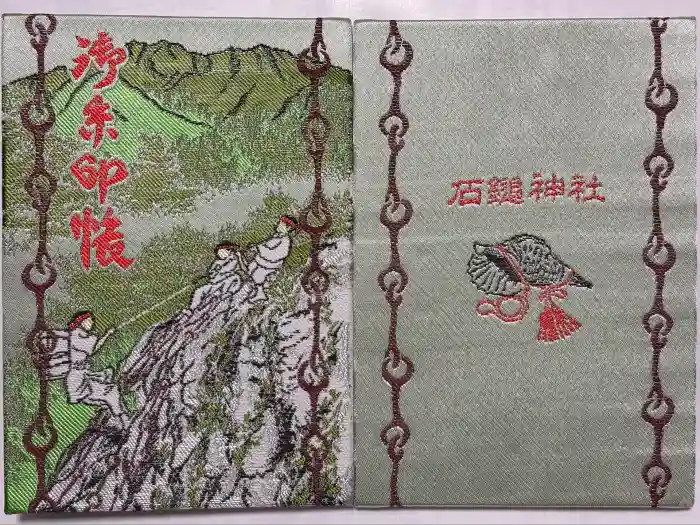 御朱印帳
石鎚神社